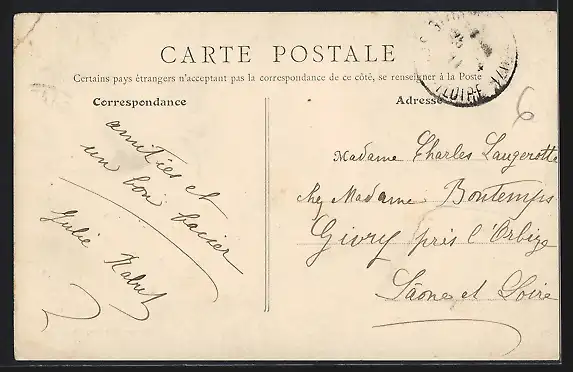 CARTE POSTALE
Certains pays étrangers n'acceptant pas la correspondance de ce côté, se renseigner à la Poste
Correspondance
Adresse
amitiés et
un bon baiser
Julie
Madame Charles Laugerotte
chez Madame Bontemps
Givry près l'Orbize
Saône et Loire
6